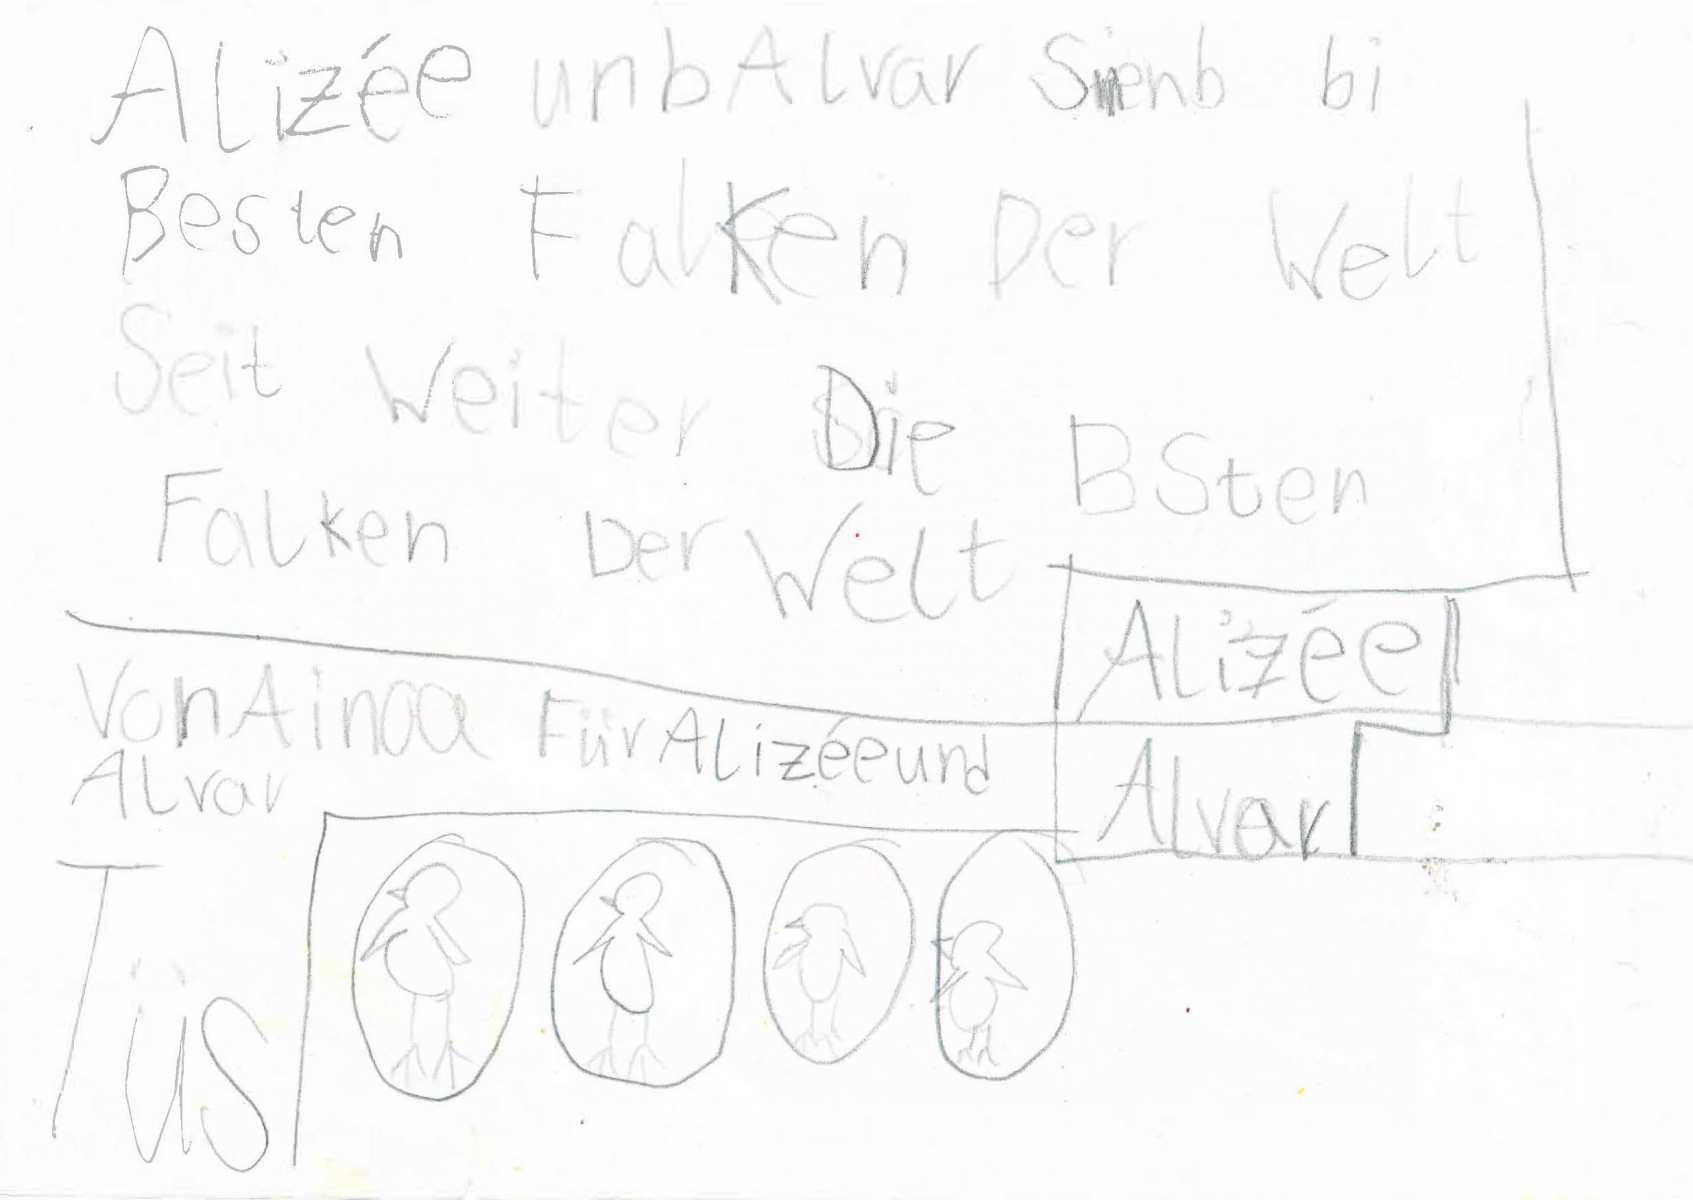 Alizée unb Alvar Sienb bi
Besten Falken Der Welt
Seit Weiter Die BSten
Falken Der Welt
Alizée
Von Ainoa Für Alizée und
Alvar
Alvar
Tüs